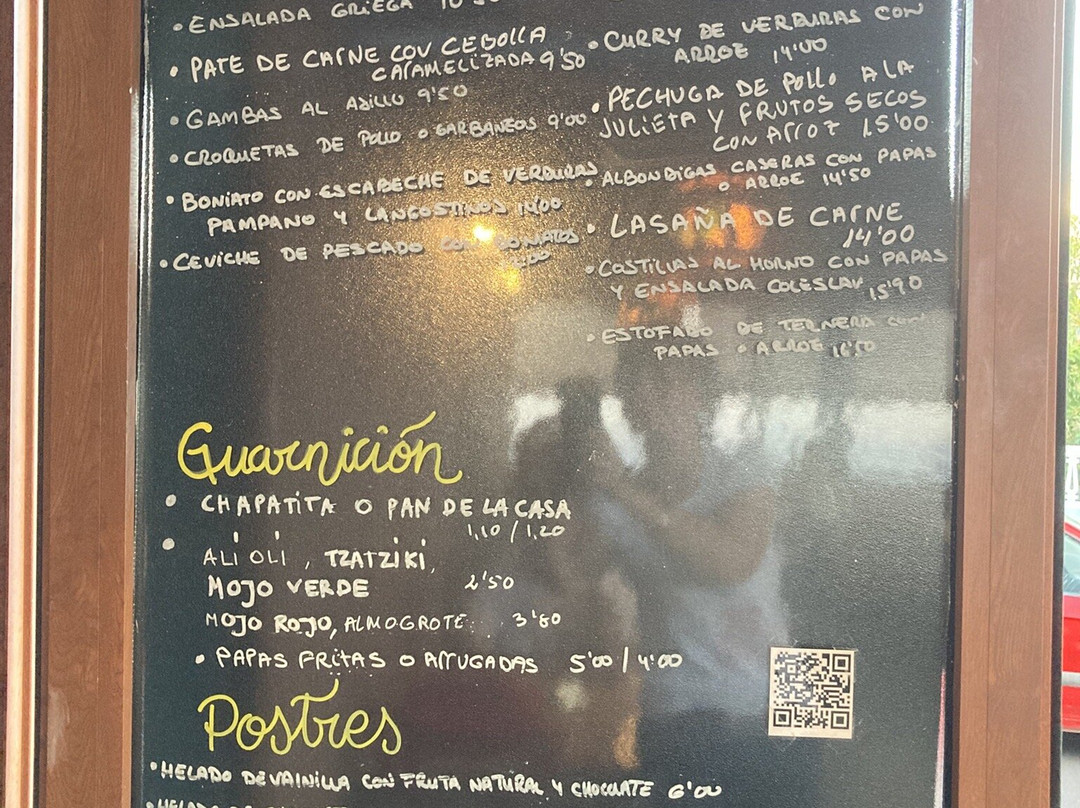 • ENSALADA GRIEGA
• PATE DE CARNE CON CEBOLLA
CARAMELIZADA 9'50
• GAMBAS AL AJILLO 9'50
• CROQUETAS DE POLLO O GARBANZOS 9'00
• BONIATO CON ESCABECHE DE VERDURAS
PAMPANO Y LANGOSTINOS 14'00
• CEVICHE DE PESCADO CON BONIATOS
• CURRY DE VERDURAS CON
ARROZ 14'00
• PECHUGA DE POLLO A LA
JULIETA Y FRUTOS SECOS
CON ARROZ 15'00
• ALBONDIGAS CASERAS CON PAPAS
O ARROZ 14'50
• LASAÑA DE CARNE
14'00
• COSTILLAS AL HORNO CON PAPAS
Y ENSALADA COLESLAW 15'90
• ESTOFADO DE TERNERA CON
PAPAS O ARROZ 16'50
Guarnición
• CHAPATITA O PAN DE LA CASA
1,10 / 1,20
• ALI OLI, TZATZIKI,
MOJO VERDE 2'50
MOJO ROJO, ALMOGROTE 3'80
• PAPAS FRITAS O ARRUGADAS 5'00 / 4'00
Postres
• HELADO DE VAINILLA CON FRUTA NATURAL Y CHOCOLATE 6'00